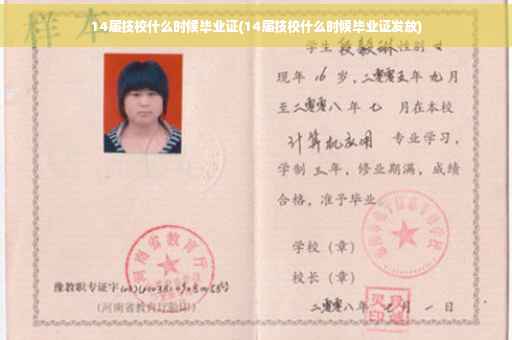 14届技校什么时候毕业证(14届技校什么时候毕业证发放)
样本
学生 段毅琳 性别 女
现年 16 岁，二零零五年 九月
至二零零八年 七 月在本校
计算机应用 专业学习，
学制 三 年，修业期满，成绩
合格，准予毕业
学校（章）
校长（章）
二零零八年 七 月 一 日
河南省教育厅
豫教职专证字
(河南省教育厅验印)